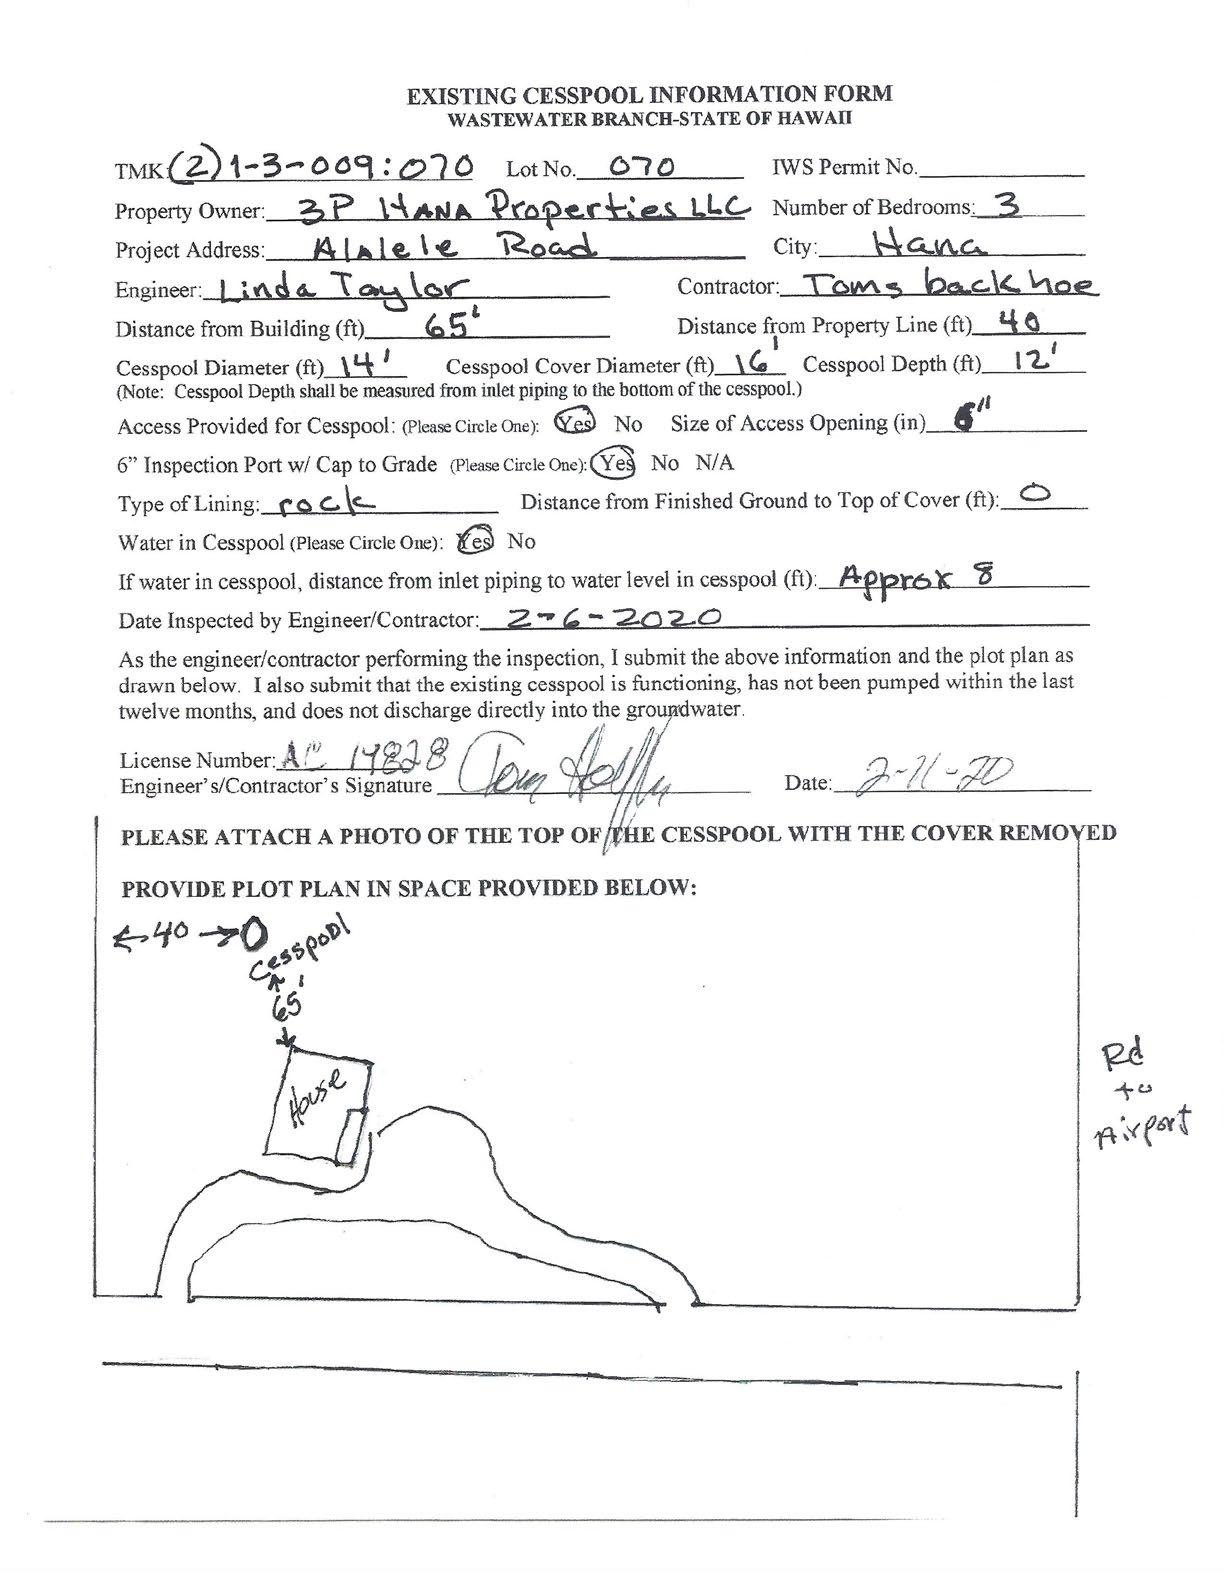 EXISTING CESSPOOL INFORMATION FORM
WASTEWATER BRANCH-STATE OF HAWAII
TMK: (2) 1-3-009:070 Lot No. 070 IWS Permit No.
Property Owner: 3P HANA Properties LLC Number of Bedrooms: 3
Project Address: Alalele Road City: Hana
Engineer: Linda Taylor Contractor: Toms backhoe
Distance from Building (ft) 65' Distance from Property Line (ft) 40
Cesspool Diameter (ft) 14' Cesspool Cover Diameter (ft) 16' Cesspool Depth (ft) 12'
(Note: Cesspool Depth shall be measured from inlet piping to the bottom of the cesspool.)
Access Provided for Cesspool: (Please Circle One): Yes No Size of Access Opening (in) 6"
6" Inspection Port w/ Cap to Grade (Please Circle One): Yes No N/A
Type of Lining: rock Distance from Finished Ground to Top of Cover (ft): 0
Water in Cesspool (Please Circle One): Yes No
If water in cesspool, distance from inlet piping to water level in cesspool (ft): Approx 8
Date Inspected by Engineer/Contractor: 2-6-2020
As the engineer/contractor performing the inspection, I submit the above information and the plot plan as
drawn below. I also submit that the existing cesspool is functioning, has not been pumped within the last
twelve months, and does not discharge directly into the groundwater.
License Number: AC 14828
Engineer's/Contractor's Signature Tom Date: 2-11-20
PLEASE ATTACH A PHOTO OF THE TOP OF THE CESSPOOL WITH THE COVER REMOVED
PROVIDE PLOT PLAN IN SPACE PROVIDED BELOW:
40
Cesspool
65'
House
Rd
to
Airport